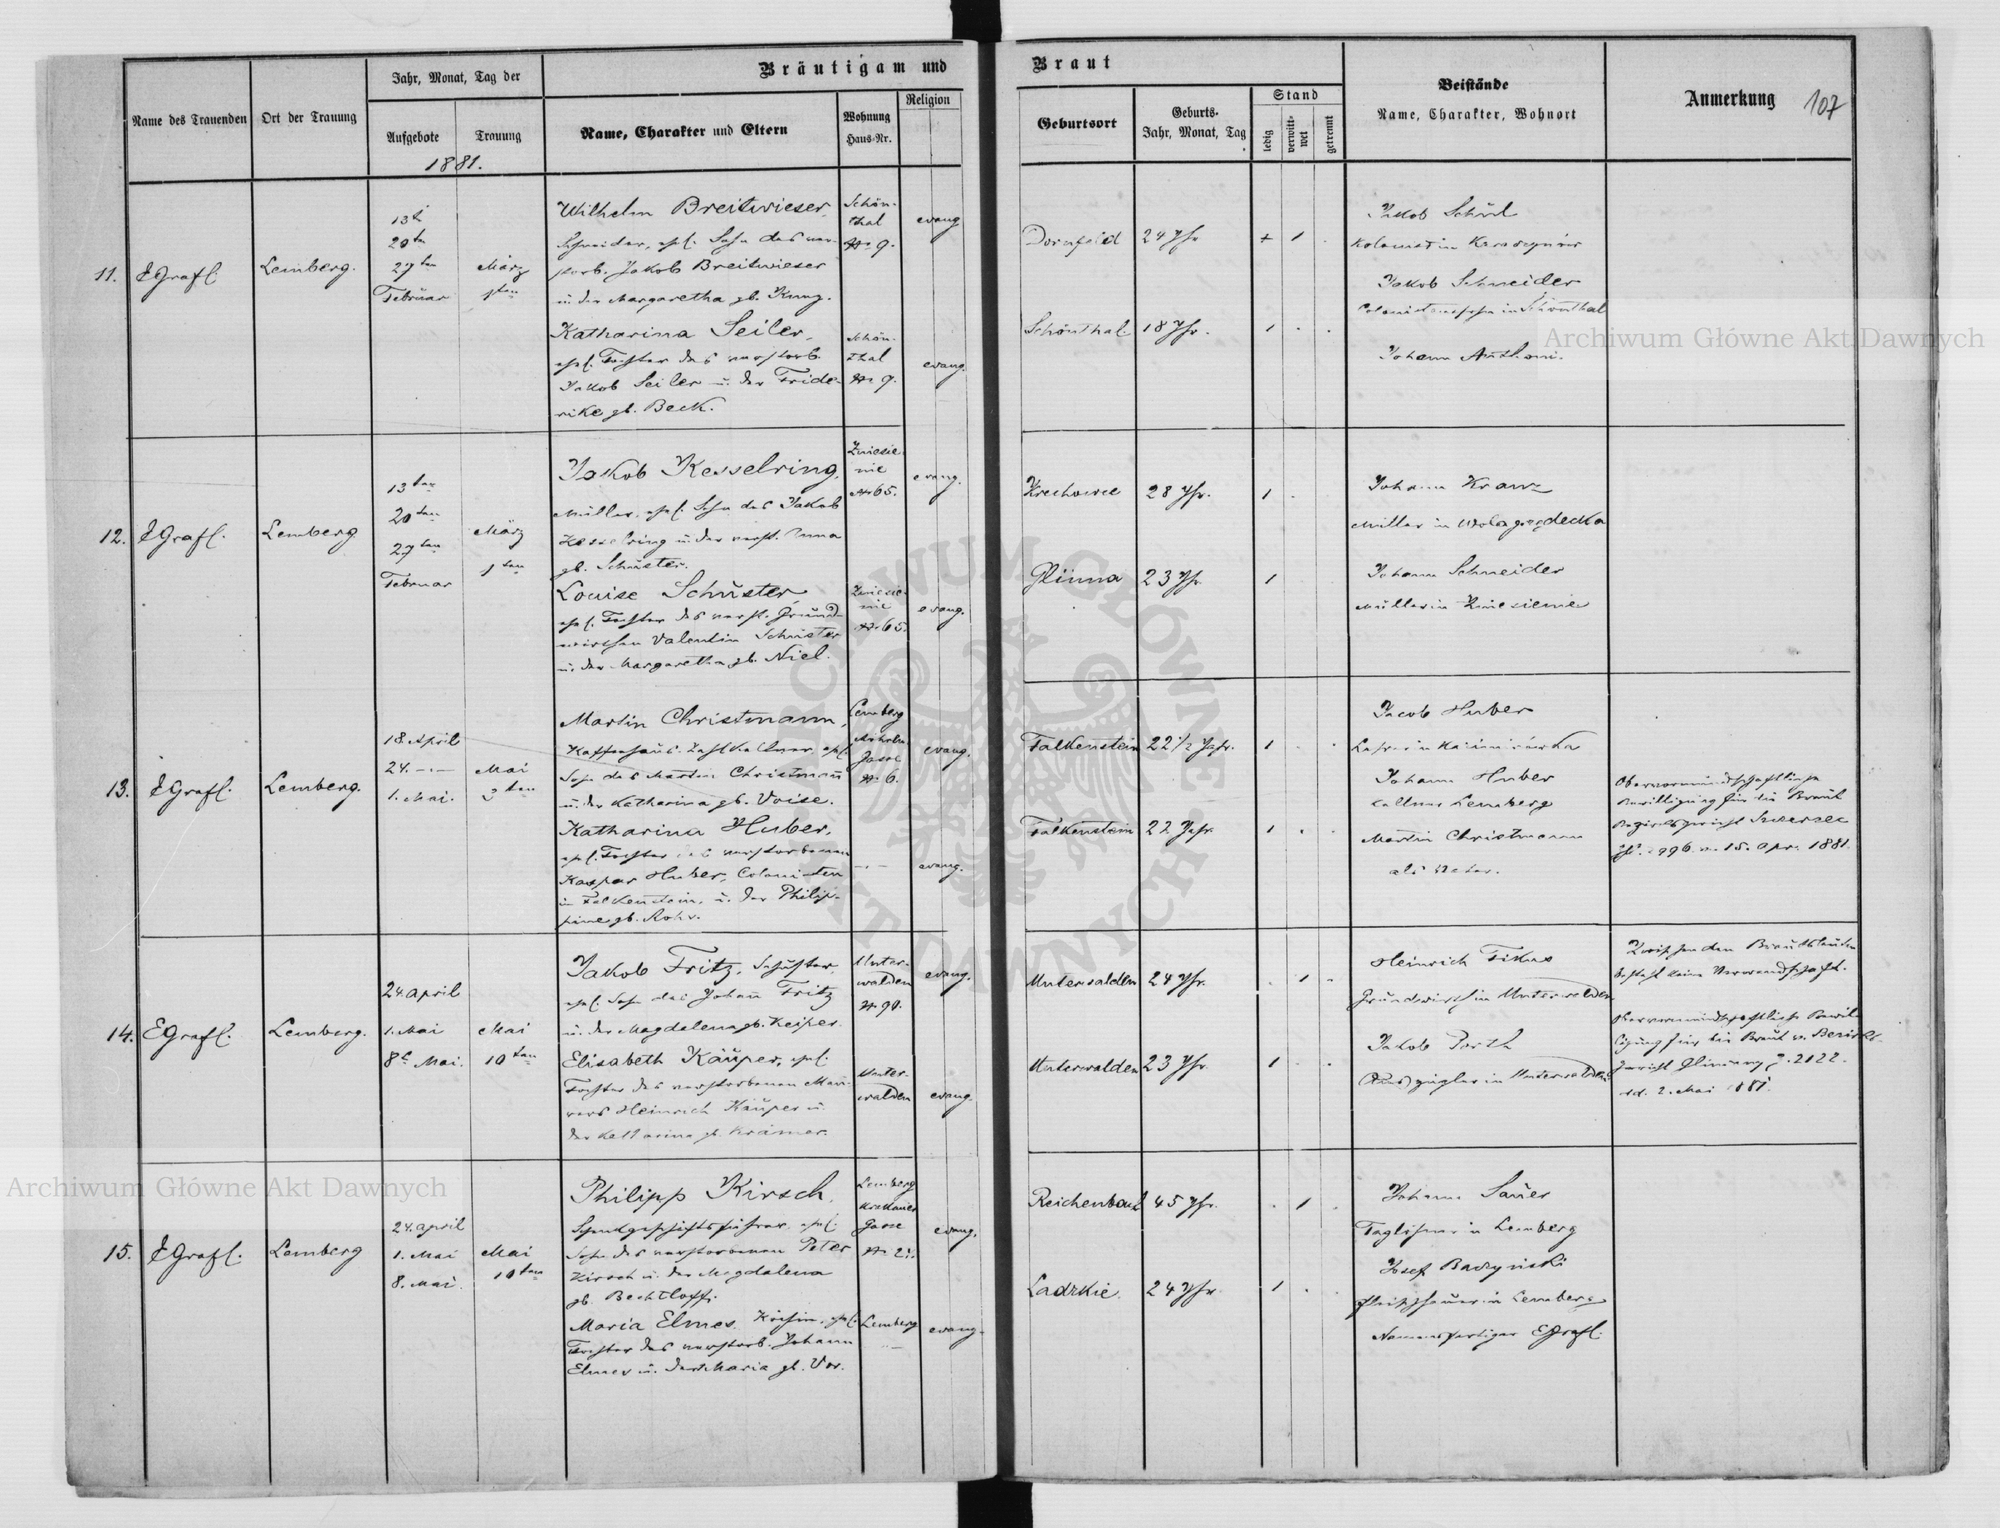 Bräutigam und Braut
Name des Trauenden
Ort der Trauung
Jahr, Monat, Tag der
Aufgebote
Trauung
1881.
Name, Charakter und Eltern
Wohnung
Haus-Nr.
Religion
Geburtsort
Geburts-
Jahr, Monat, Tag
Stand
ledig
verwitt-
wet
getrennt
Beistände
Name, Charakter, Wohnort
Anmerkung
107
11.
EGrafl.
Lemberg.
13t
20ten
27ten
Februar
März
1ten
Wilhelm Breitwieser,
Schneider, ehel. Sohn des ver-
storb. Jakob Breitwieser
u. der Margaretha gb. Kung.
Schön-
thal
Nr 9.
evang
Katharina Seiler,
ehel. Tochter des verstorb.
Jakob Seiler u. der Fride-
rike gb. Beck.
Schön-
thal
Nr 9.
evang.
Dornfeld
24 Jhr
Schönthal.
18 Jhr.
Jakob
Jakob Schneider
in Schönthal
Johann
12.
EGrafl.
Lemberg
13ten
20ten
27ten
Februar
März
1ten
Jakob Kesselring,
Müller, ehel. Sohn des Jakob
Kesselring u. der verst. Anna
gb. Schuster.
Zniesie-
nie
Nr 65.
evang.
Louise Schuster
ehel. Tochter des verst. Grund-
wirthen Valentin Schuster
u. der Margaretha gb. Niel.
Zniesie-
nie
Nr 65.
evang.
Krechowce
28 Jhr.
Glinna
23 Jhr.
Johann
Müller in
Johann Schneider
Müller in Zniesienie
13.
EGrafl.
Lemberg.
18. April
24. -.-
1. Mai.
Mai
3ten
Martin Christmann,
Kaffeehaus-Zahlkellner, ehel.
Sohn des Martin Christmann
u. der Katharina gb. Voise.
Lemberg
Gasse
Nr 6.
evang.
Katharina Huber,
ehel. Tochter des verstorbenen
Kaspar Huber, Colonisten
in Falkenstein, u. der Philip-
pine gb. Rohr.
-.-
evang.
Falkenstein
22 1/2 Jahr.
Falkenstein
22 Jahr
Jacob Huber
Lehrer in
Johann Huber
Kellner Lemberg
Martin Christmann
als Vater.
Obervormundschaftliche
Bewilligung für die Braut
Bezirksgericht
15. Apr. 1881.
14.
EGrafl.
Lemberg.
24. April
1. Mai
8t Mai.
Mai
10ten
Jakob Fritz, Schuster,
ehel. Sohn des Johann Fritz
u. der Magdalena gb. Keiper.
Unter-
walden
evang.
Elisabeth Käuper, ehel.
Tochter des verstorbenen Mau-
rers Heinrich Käuper u.
der Katharina gb. Krämer.
Unter-
walden
evang.
Unterwalden
24 Jhr.
Unterwalden
23 Jhr.
Heinrich
Grundwirth in Unterwalden
Jakob Porth
Ausgügler in Unterwalden
Zwischen den Brautleuten
besteht keine Verwandschaft.
Obervormundschaftliche Bewil-
ligung für die Braut v. Bezirks-
gericht Gliniany Z. 2122.
dd. 2. Mai 1881.
15.
EGrafl.
Lemberg
24. April
1. Mai
8. Mai.
Mai
10ten
Philipp Kirsch,
Schankgeschäftsführer, ehel.
Sohn des verstorbenen Peter
Kirsch u. der Magdalena
gb. Bechtloff.
Lemberg
Krakauer
Gasse
evang.
Maria Elmes, Köchin, ehel.
Tochter des verstorb. Johann
Elmes u. der Maria gb.
Lemberg
evang.
Reichenbach
45 Jhr.
Ladzkie.
24 Jhr.
Johann Sauer
Taglöhner in Lemberg
Josef
Fleischhauer in Lemberg
Namensfertiger EGrafl.
Archiwum Główne Akt Dawnych
Archiwum Główne Akt Dawnych
ARCHIWUM GŁÓWNE AKT DAWNYCH